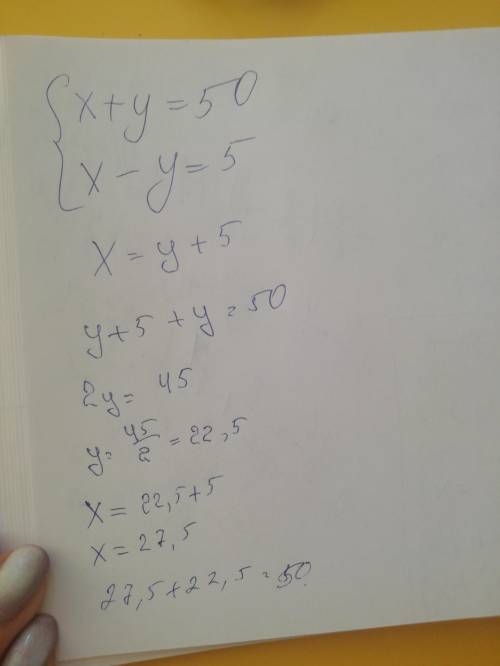 x+y=50
x-y=5
x=y+5
y+5+y=50
2y=45
y=45/2=22,5
x=22,5+5
x=27,5
27,5+22,5=50